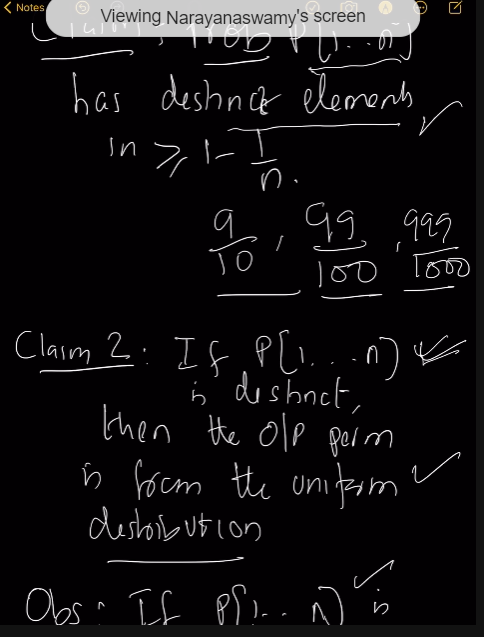 Notes
Viewing Narayanaswamy's screen
Claim : Prob P[1...n]
has distinct elements
in ≥ 1 - 1/n.
9/10, 99/100, 999/1000
Claim 2 : If P[1...n]
is distinct,
then the O/P perm
is from the uniform
distribution
Obs : If P[1..n] is